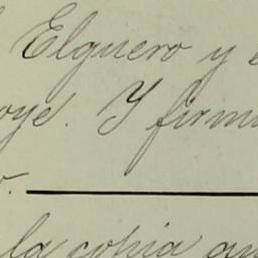 Elguero y
oye. Y firm
la copia